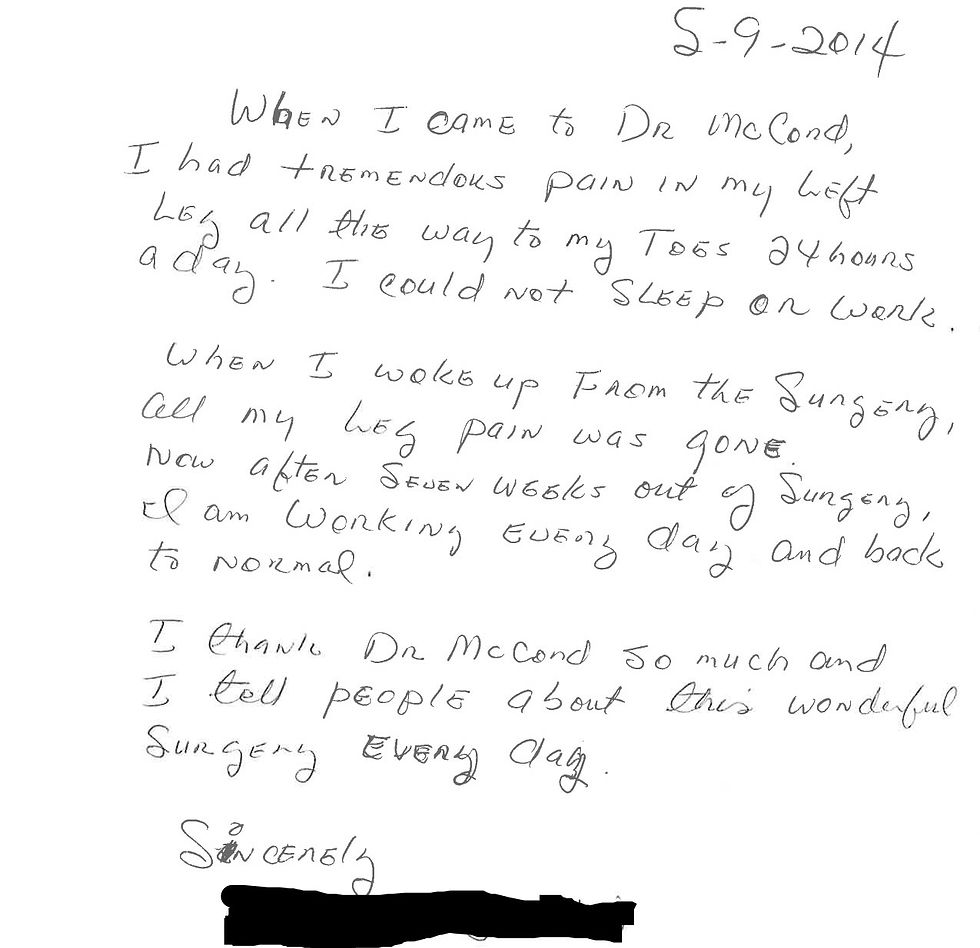 5-9-2014
When I came to Dr McCord,
I had tremendous pain in my Left
Leg all the way to my Toes 24 hours
a day. I could not Sleep or work.
When I woke up From the Surgery,
all my Leg pain was gone.
Now after Seven weeks out of Surgery,
I am Working Every day and back
to Normal.
I thank Dr McCord so much and
I tell people about this wonderful
Surgery Every day.
Sincerely